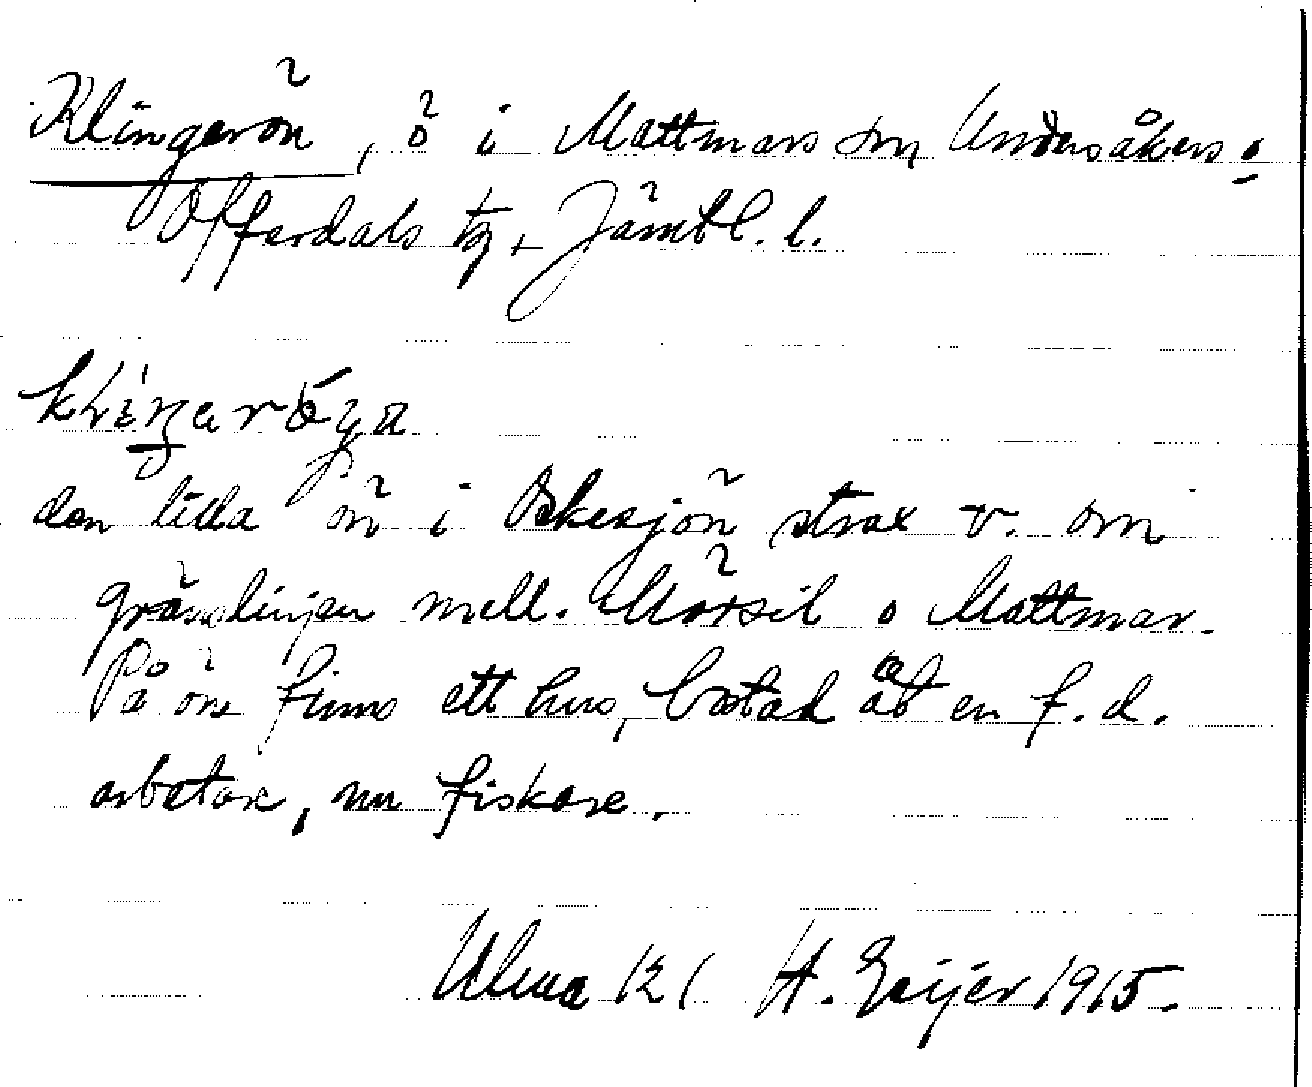 Klingerön, ö i Mattmars sn Undersåkers o
Offerdals tg, Jämtl. l.
den lilla ön i Ockesjön strax v. om
gränslinjen mell. Mörsil o Mattmar.
På ön finns ett hus, en f.d.
arbetare, nu fiskare.
H. Geijer 1915.